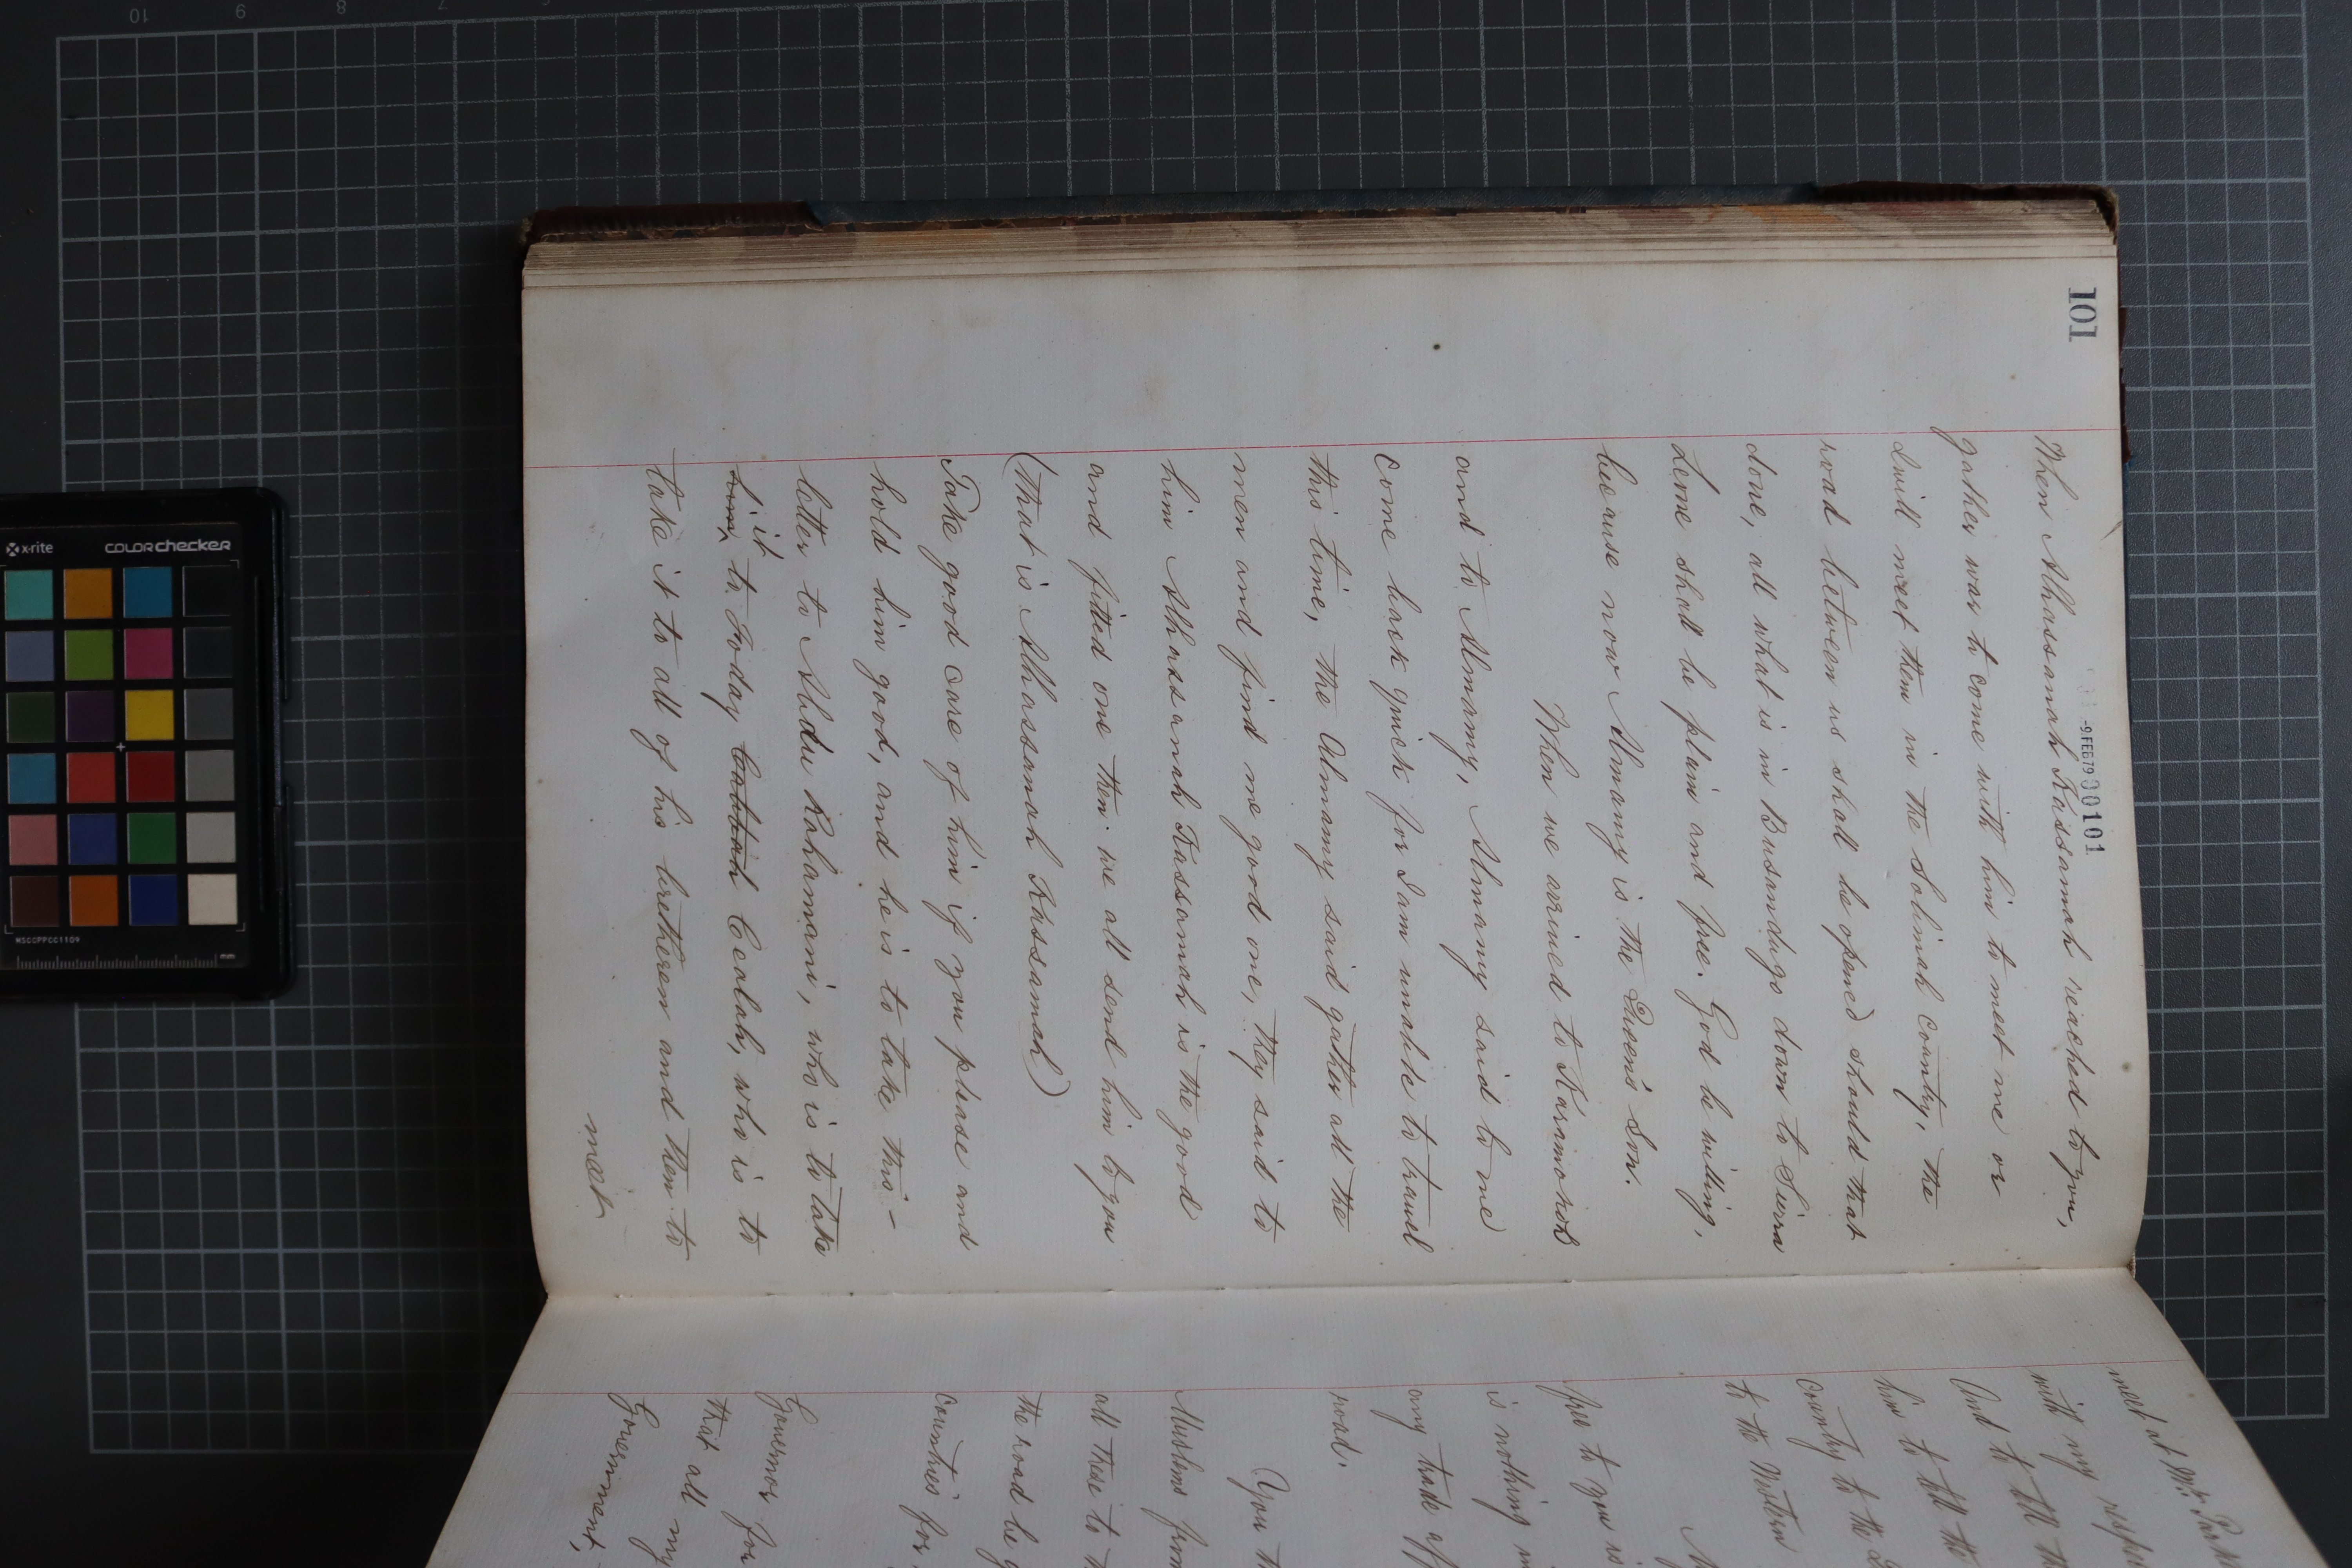 101
-9 FEB 79 00101
When Alhassanah Kassamah reached to you,
gather was to come with him to meet me or
I will meet them in the Solimah country, the
road between us shall be opened should that
done, all what is in Busandugo down to Sierra
Leone shall be plain and free. God be willing,
because now Almamy is the Queen's Son.
When we arrived to Karamokoh
and to Almamy, Almamy said to me
come back quick for I am unable to travel
this time, the Almamy said gather all the
men and find me good one, they said to
him Alhassanah Kassamah is the good
and fitted one then we all send him to you
(that is Alhassanah Kassamah)
Take good care of him if you please and
hold him good, and he is to take this -
letter to Abdu Rahamani, who is to take
it
him to Foday Cealah, who is to
take it to all of his bretheren and then to
meet
meet at Mr.
with my
And to tell
him to tell the
country to the
to the Mother
free to you is
is nothing
any trade
road.
You
Muslims
all these to
the road be
countries for
Governor for
that all my
Government,
x-rite
COLORchecker
MSCCPPCC1109
mm
10
9
8
7